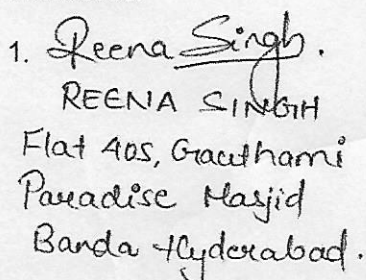 1. Reena Singh.
REENA SINGH
Flat 405, Gauthami
Paradise Masjid
Banda Hyderabad.